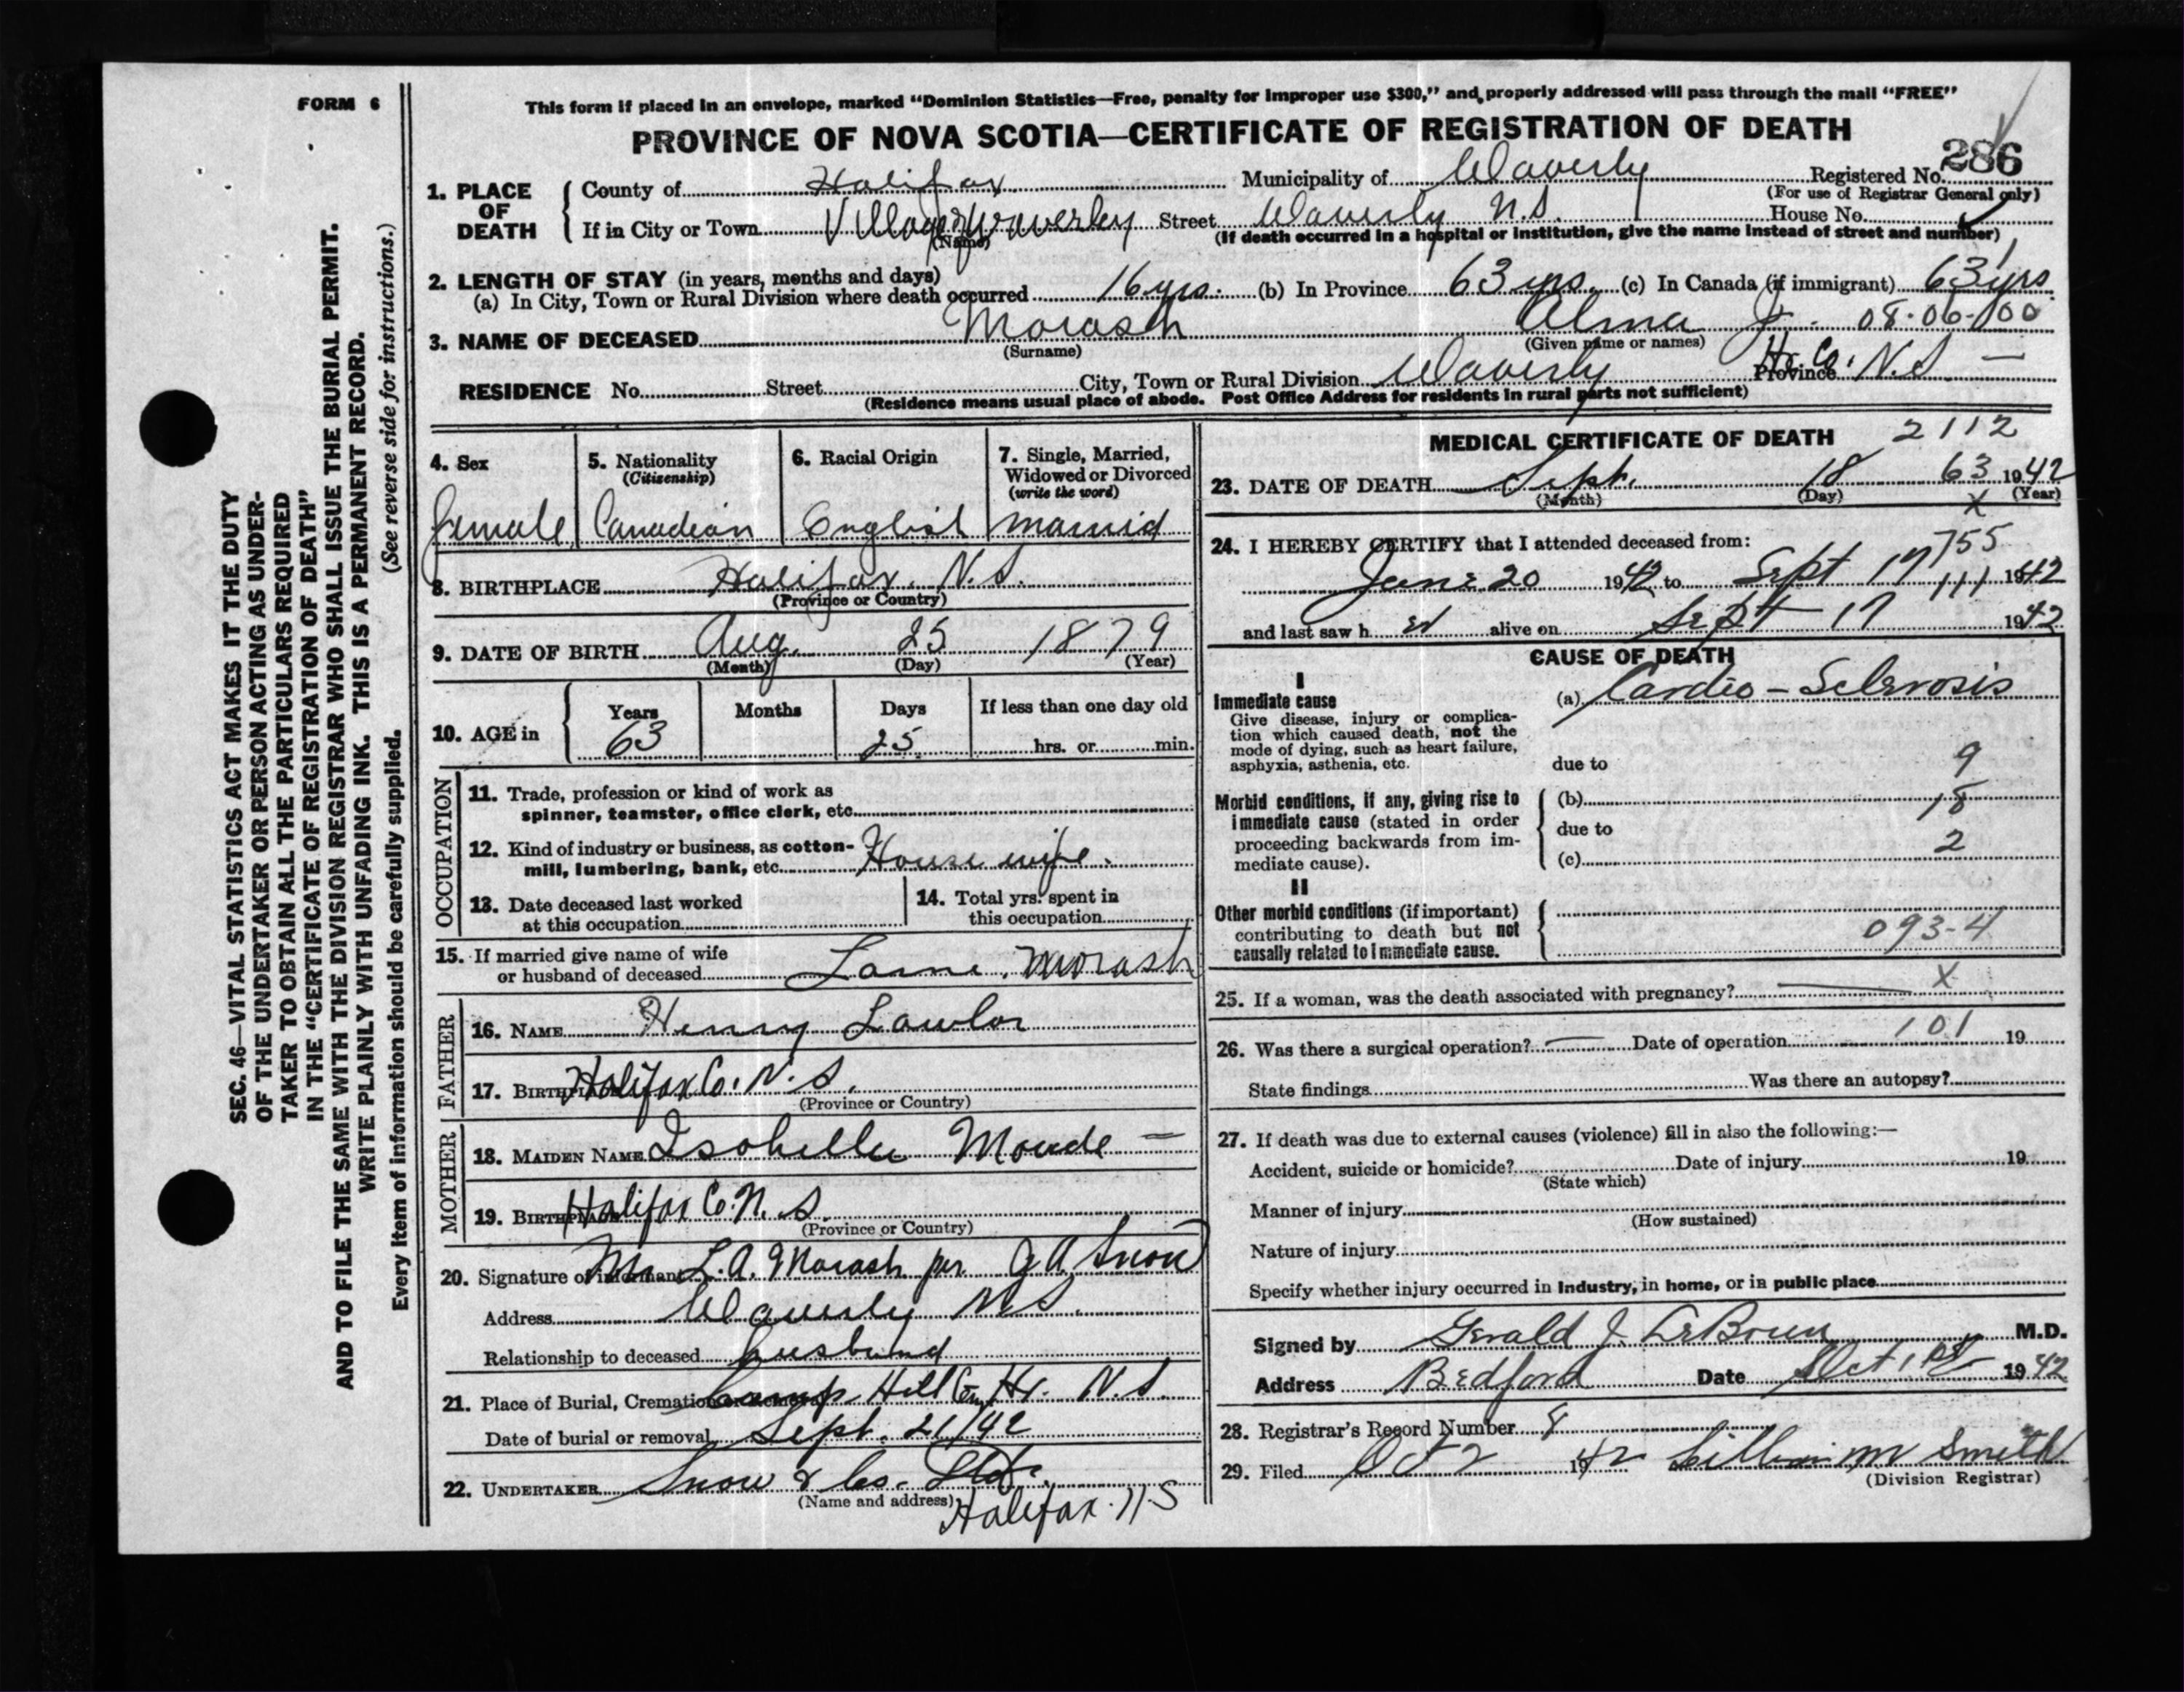 FORM 6
This form if placed in an envelope, marked “Dominion Statistics—Free, penalty for improper use $300,” and properly addressed will pass through the mail “FREE”
PROVINCE OF NOVA SCOTIA—CERTIFICATE OF REGISTRATION OF DEATH
286
1. PLACE OF DEATH County of Halifax Municipality of Waverly Registered No.
(For use of Registrar General only)
If in City or Town Village Waverley Street Waverly N.S. House No.
(Name) (If death occurred in a hospital or institution, give the name instead of street and number)
2. LENGTH OF STAY (in years, months and days)
(a) In City, Town or Rural Division where death occurred 16 yrs. (b) In Province 63 yrs. (c) In Canada (if immigrant) 63 yrs
3. NAME OF DECEASED Morash Alma J. 08-06-100
(Surname) (Given name or names)
RESIDENCE No. Street City, Town or Rural Division Waverly Province Hx. Co. N.S —
(Residence means usual place of abode. Post Office Address for residents in rural parts not sufficient)
4. Sex 5. Nationality 6. Racial Origin 7. Single, Married,
(Citizenship) Widowed or Divorced
(write the word)
female Canadian English married
8. BIRTHPLACE Halifax. N.S.
(Province or Country)
9. DATE OF BIRTH Aug. 25 1879
(Month) (Day) (Year)
10. AGE in Years Months Days If less than one day old
63 25 hrs. or min.
OCCUPATION
11. Trade, profession or kind of work as
spinner, teamster, office clerk, etc.
12. Kind of industry or business, as cotton-
mill, lumbering, bank, etc. House wife.
13. Date deceased last worked
at this occupation
14. Total yrs. spent in
this occupation
15. If married give name of wife
or husband of deceased Morash
FATHER
16. NAME Henry Lawlor
17. BIRTHPLACE Halifax Co. N.S.
(Province or Country)
MOTHER
18. MAIDEN NAME Isobelle —
19. BIRTHPLACE Halifax Co. N.S.
(Province or Country)
20. Signature of informant Mr L.A. Morash per G A Snow
Address Waverly N.S.
Relationship to deceased husband
21. Place of Burial, Cremation or Removal Camp Hill Cem Hx. N.S.
Date of burial or removal Sept. 21/42
22. UNDERTAKER Snow & Co. Ltd.
(Name and address) Halifax. N.S
MEDICAL CERTIFICATE OF DEATH 2112
23. DATE OF DEATH Sept. 18 63 1942
(Month) (Day) (Year)
X
24. I HEREBY CERTIFY that I attended deceased from:
755
June 20 1942 to Sept 17 111 1942
and last saw h er alive on Sept 17 1942
CAUSE OF DEATH
I
Immediate cause
Give disease, injury or complica-
tion which caused death, not the
mode of dying, such as heart failure,
asphyxia, asthenia, etc.
(a) Cardio-Sclerosis
due to 9
Morbid conditions, if any, giving rise to
immediate cause (stated in order
proceeding backwards from im-
mediate cause).
(b) 18
due to
(c) 2
II
Other morbid conditions (if important)
contributing to death but not
causally related to immediate cause.
093-4
25. If a woman, was the death associated with pregnancy? — X
26. Was there a surgical operation? — Date of operation 101 19
State findings Was there an autopsy?
27. If death was due to external causes (violence) fill in also the following:—
Accident, suicide or homicide? Date of injury 19
(State which)
Manner of injury
(How sustained)
Nature of injury
Specify whether injury occurred in industry, in home, or in public place
Signed by Gerald J. M.D.
Address Bedford Date Oct 1st 1942
28. Registrar's Record Number 8
29. Filed Oct 2 1942 Lillian M Smith
(Division Registrar)
SEC. 46—VITAL STATISTICS ACT MAKES IT THE DUTY
OF THE UNDERTAKER OR PERSON ACTING AS UNDER-
TAKER TO OBTAIN ALL THE PARTICULARS REQUIRED
IN THE “CERTIFICATE OF REGISTRATION OF DEATH”
AND TO FILE THE SAME WITH THE DIVISION REGISTRAR WHO SHALL ISSUE THE BURIAL PERMIT.
WRITE PLAINLY WITH UNFADING INK. THIS IS A PERMANENT RECORD.
(See reverse side for instructions.)
Every item of information should be carefully supplied.